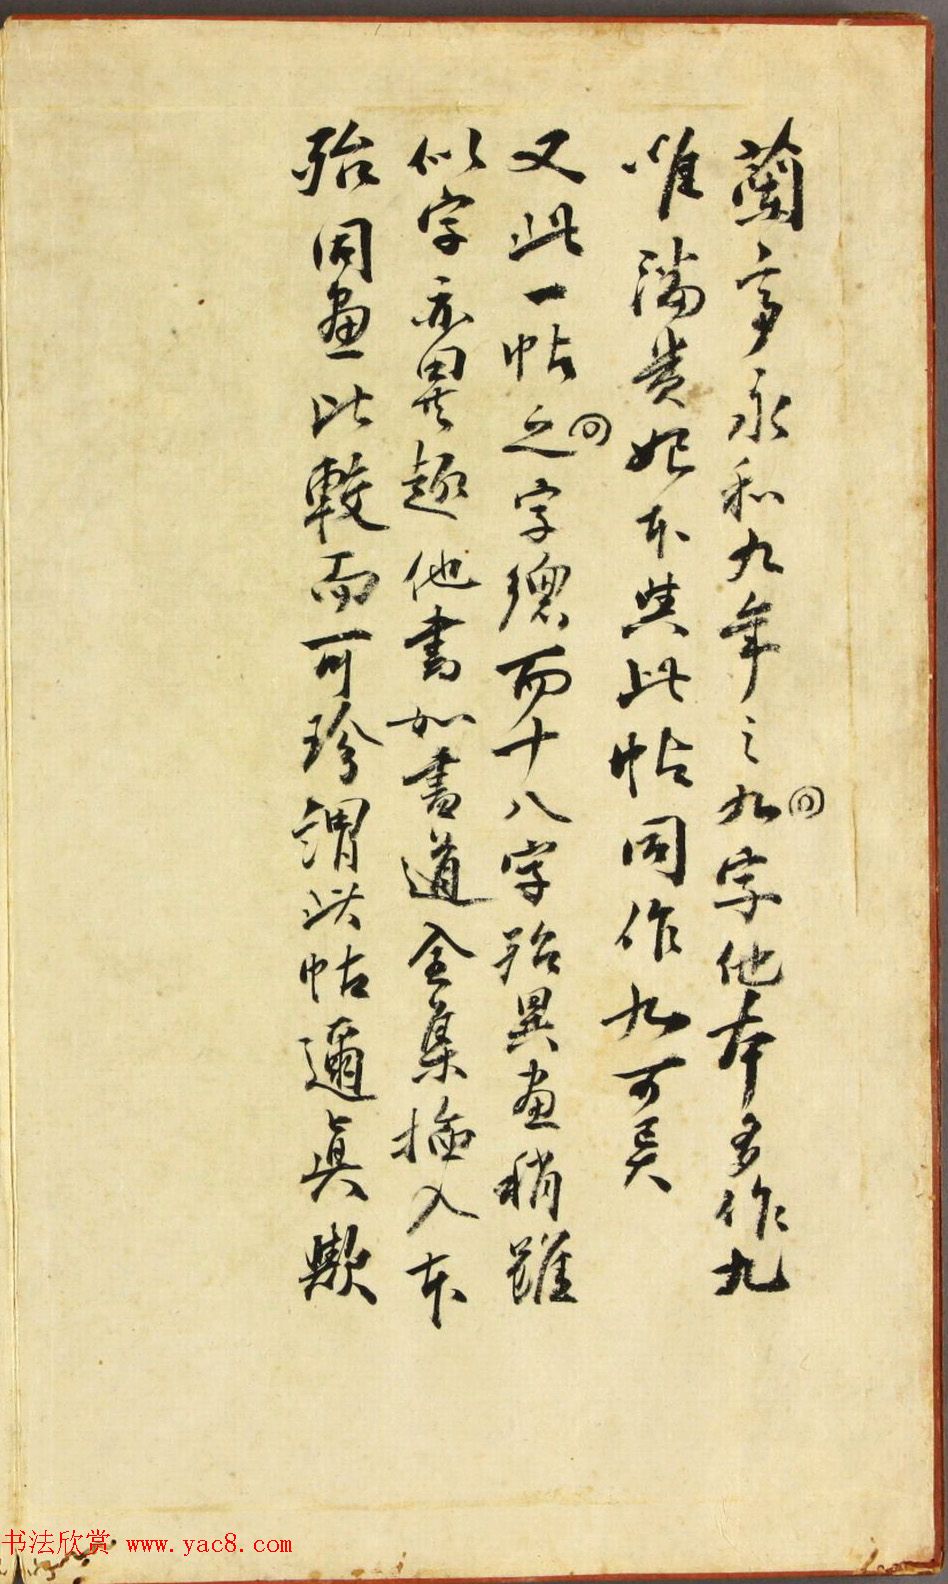 蘭亭永和九年之九字他本多作九
唯潘貴妃本與此帖同作九可異
又此一帖之字總而十八字殆異畫稍雖
似字亦異趣他書如書道全集揷入本
殆同畫比較而可珍謂此帖邇真歟
书法欣赏 www.yac8.com